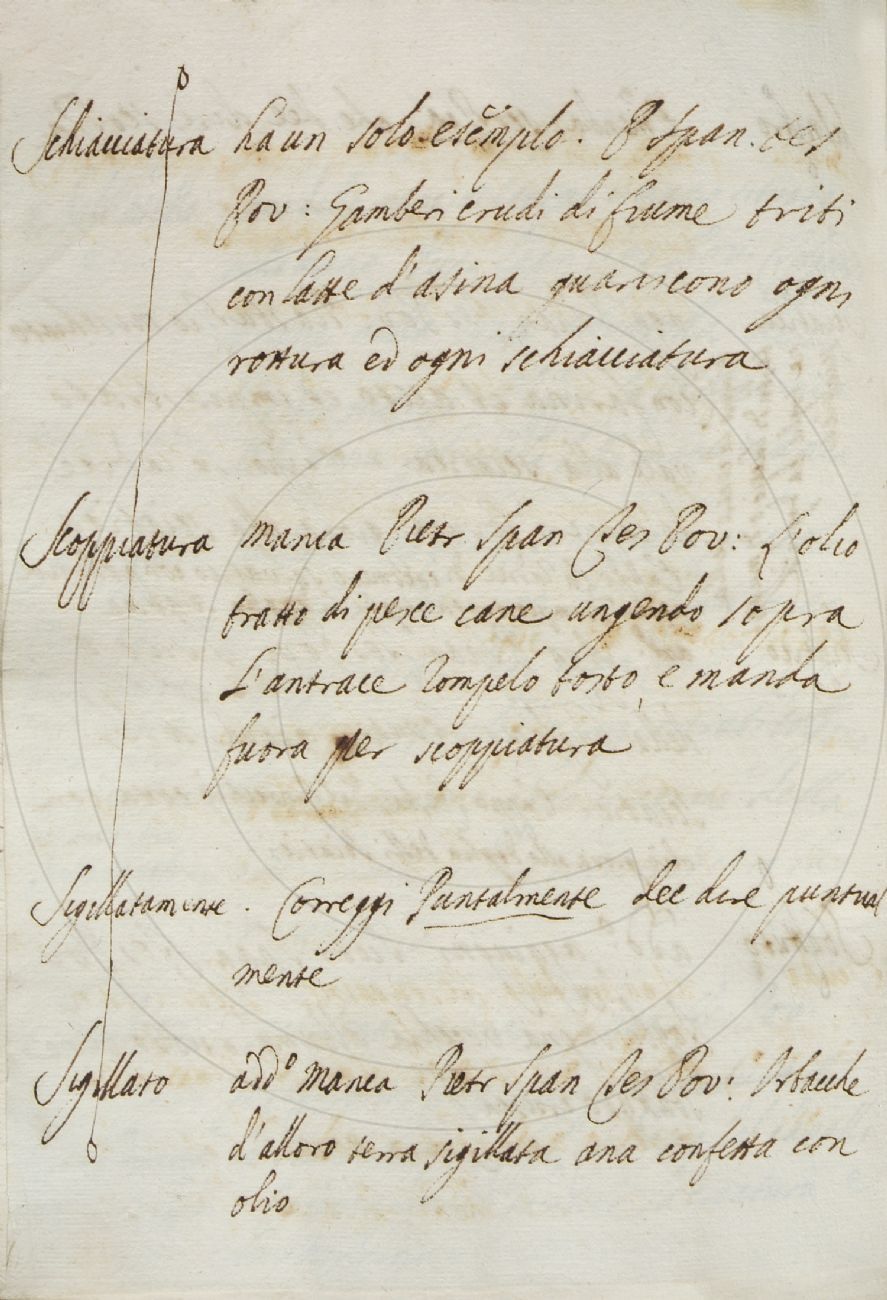 Schiacciatura ha un solo esempio. P Span. tes
Pov: Gamberi crudi di fiume triti
con latte d'asina guariscono ogni
rottura ed ogni schiacciatura
Scoppiatura manca Pietr Span Tes Pov: L'olio
tratto di pesce cane ungendo sopra
L'antrace rompelo tosto, e manda
fuora per scoppiatura
Sigillatamente. Correggi Puntalmente dee dire puntual
mente
Sigillato add° manca Pietr Span Tes Pov: Orbacche
d'alloro terra sigillata ana confetta con
olio